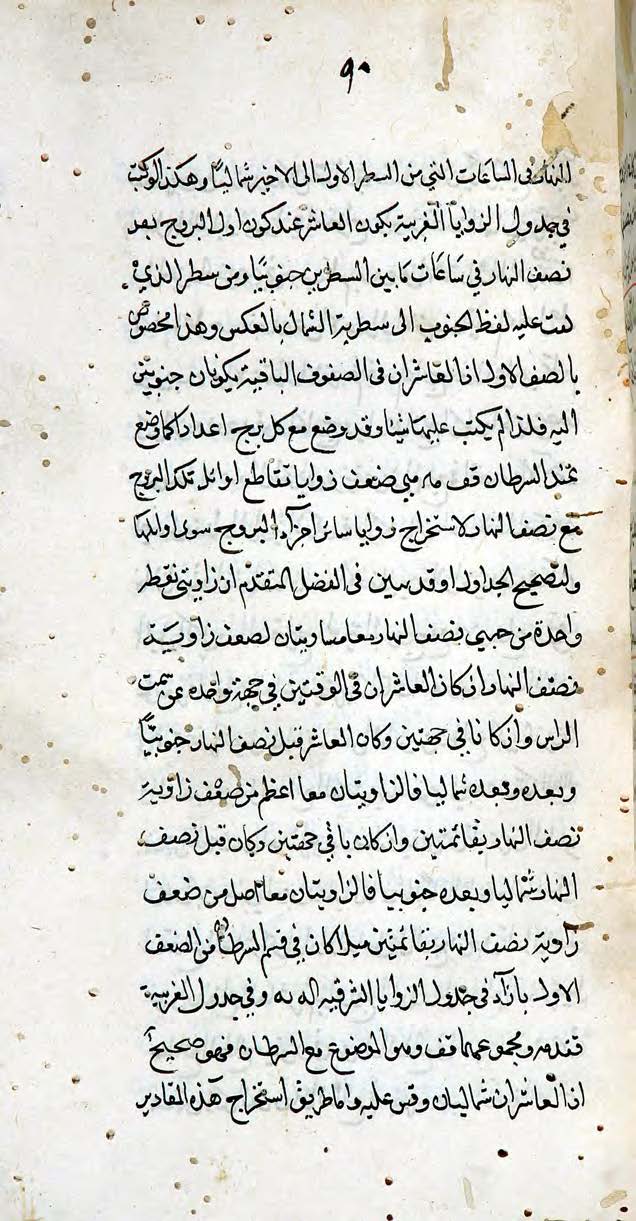 ٩٠
النهار فى الساعات التي من السطر الاول الى الاخير شماليا وهكذا لو كتب
في جدول الزوايا الغربية يكون العاشر عند كون اول البروج بعد
نصف النهار في ساعات ما بين السطرين جنوبيا ومن سطر الذي
كتب عليه لفظ الجنوب الى سطرية الشمال بالعكس وهذا مخصوص
بالصف الاول اذ العاشران فى الصفوف الباقية يكونان جنوبيين
البه فلذا لم يكتب عليهما شيئا وقد وضع مع كل برج اعداد كما وضع
عند السرطان قف مه مبي ضعف زوايا تقاطع اوائل تلك البروج
مع نصف النهار لاستخراج زوايا سائر اجزآء البروج سوى اوائلها
ولتصحيح الجداول اوقد مبين فى الفضل المتقدم ان زاويتى نقطر
واحدة من جهبي نصف النهار معا مساويتان لصعف زاوية
نصف النهار ان كان العاشران فى الوقتين في جهة واحده عن سمت
الراس وان كانا في جهتين وكان العاشر قبل نصف النهار جنوبيا
وبعده شماليا فالزاويتان معا اعظم من ضعف زاوية
نصف النهار بقائمتين وان كان با في جهتين وكان قبل نصف
النهار شماليا وبعده جنوبيا فالزاويتان معا اصل من ضعف
زاوية نصف النهار بقائمتين ميلا كان في قسم السرطان من الضعف
الاول بازآء فى جدول الزوايا الشرقيه له به وفي جدول الغربية
قند مه ومجموعهما قف وهو الموضوع مع السرطان فهو صحيح
اذ العاشران شماليان وقس عليه واما طريق استخراج هذه المقادير